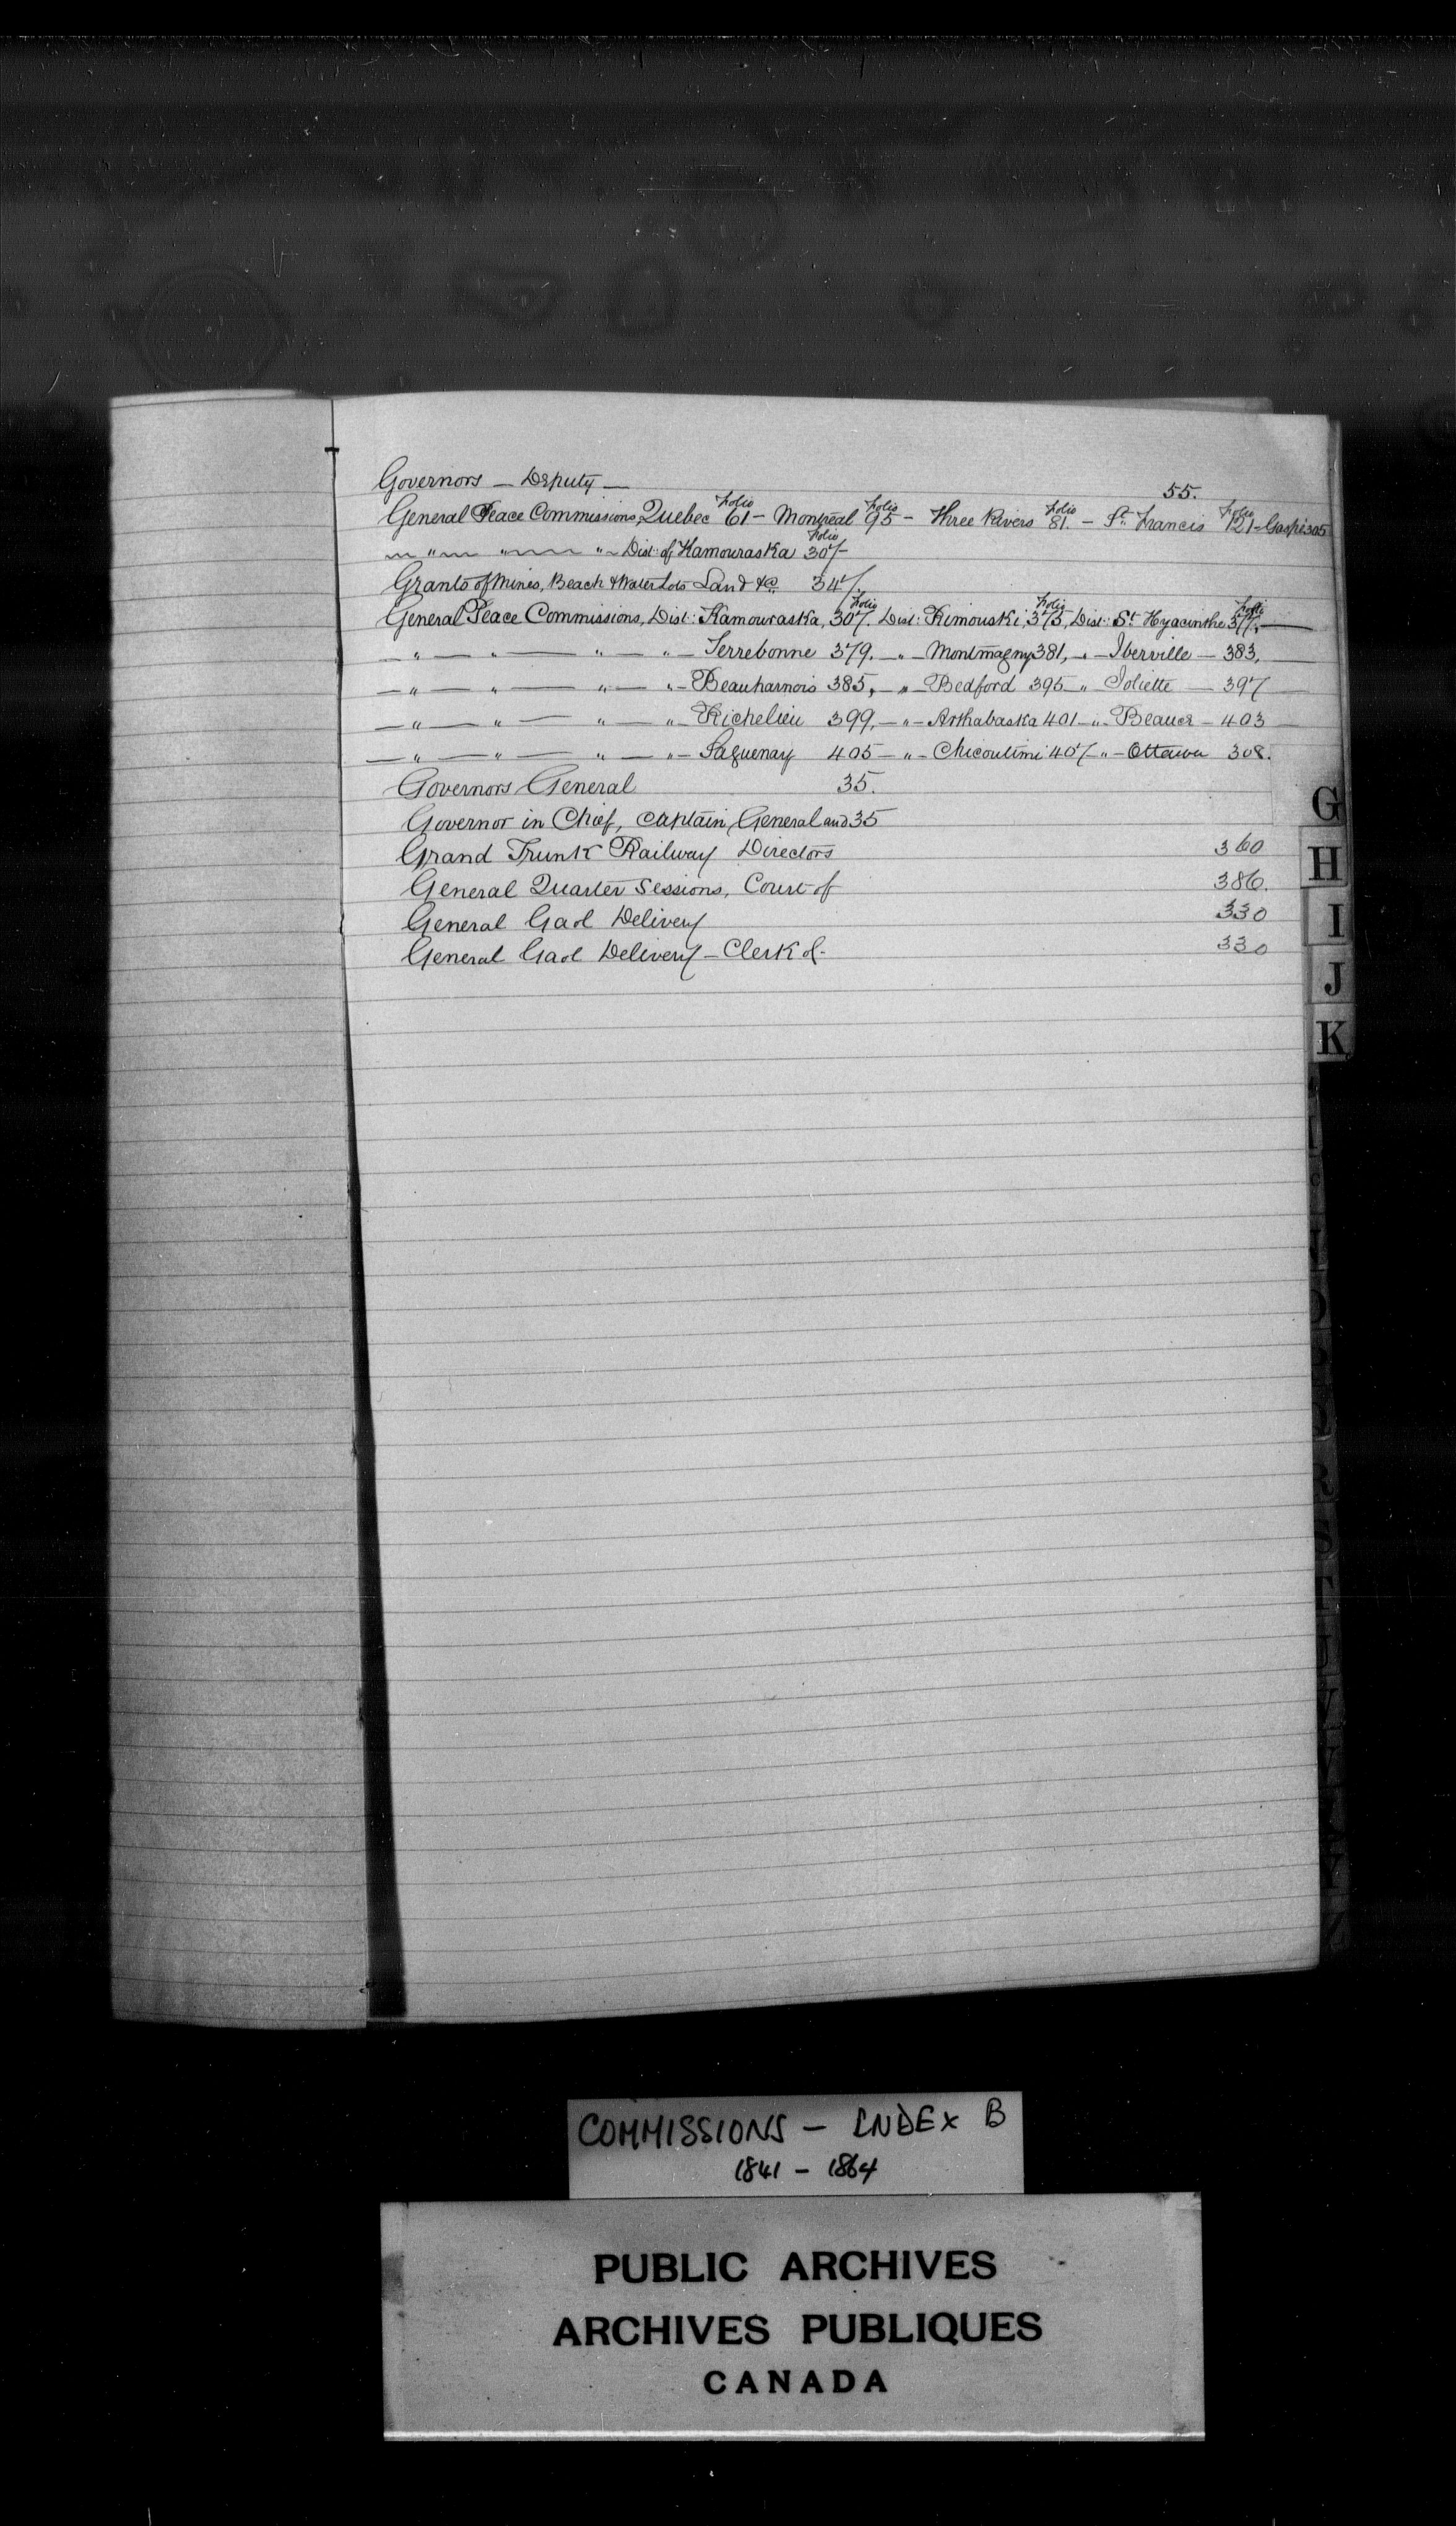 Governors — Deputy — 55.
General Peace Commissions, Quebec folio 61 – Montreal folio 95 – Three Rivers folio 81. – St. Francis folio 121 – Gaspé 305
— " — " — " – Dist: of Kamouraska folio 307
Grants of Mines, Beach & Water Lots Land &c. 347
General Peace Commissions, Dist: Kamouraska, folio 307. Dist: Rimouski, folio 375, Dist: St. Hyacinthe folio 377, —
— " — " — " — " – Terrebonne 379. – " – Montmagny 381, – " – Iberville — 383,
— " — " — " — " – Beauharnois 385, – " – Bedford 395 – " Joliette — 397
— " — " — " — " – Richelieu 399, – " – Arthabaska 401 – " – Beauce – 403
— " — " — " — " – Saguenay 405 – " – Chicoutimi 407 – " – Ottawa 308.
Governors General 35.
Governor in Chief, Captain General and 35
Grand Trunk Railway Directors 360
General Quarter Sessions, Court of 386.
General Gaol Delivery 330
General Gaol Delivery – Clerk of. 330
G
H
I
J
K
COMMISSIONS – INDEX B
1841 – 1864
PUBLIC ARCHIVES
ARCHIVES PUBLIQUES
CANADA